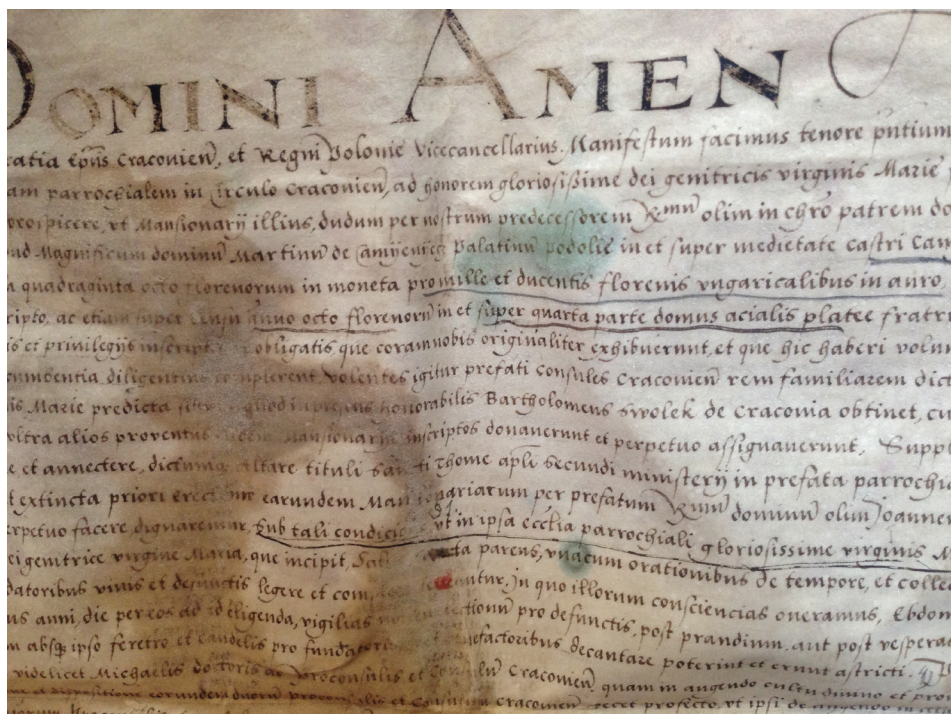 DOMINI AMEN
ratia Epūs Cracovień, et Regni Polonie Vicecancellarius. Manifestum facimus tenore pñtium
am parrochialem in Circulo Cracovień, ad honorem gloriosissime dei genitricis virginis Marie
prospicere, vt Mansionarij illius, dudum per nostrum predecessorem Rmū olim in chrō patrem do
ud Magnificum dominū Martinū de Palatinū podolie in et super medietate castri Cam
a quadraginta octo florenorum in moneta pro mille et ducentis florenis vngaricalibus in auro,
ripto, ac etiam super censu annuo octo florenorū in et super quarta parte domus acialis platee fratr
is et privilegijs inscript obligatis que coram nobis originaliter exhibuerunt, et que hic haberi volum
cumbentia, diligentius compierent, volentes igitur prefati Consules Cracovień rem familiarem dict
is Marie predicta quod in presens honorabilis Bartholomeus Swolek de Cracovia obtinet, cu
vltra alios proventus Mansionarijs inscriptos donaverunt et perpetuo assignaverunt, Suppl
e et annectere, dictumq altare tituli Sancti Thome apli secundi ministerij in prefata parrochia
t extincta priori erectione earundem Mansionariarum per prefatum Rmū dominū olim Joannem
erpetuo facere dignaremur, Sub tali condicione vt in ipsa ecclia parrochiali gloriosissime virginis M
ei genitrice virgine Maria, que incipit, Salve sancta parens, vnacum orationibus de tempore, et colle
datoribus vivis et defunctis legere et com antur, In quo illorum consciencias oneramus, Ebdom
us anni, die per eos ad id eligenda, vigilias lectionū pro defunctis, post prandium aut post vespera
m absq ipso feretro et candelis pro fundatori benefactoribus decantare poterint et erunt astricti.
videlicet Michaelis doctoris ac proconsulis et Consulū Cracovień, quam in augendo cultu divino et pro
et dispositione eorundem duorū proconsulis et Consulum Cracovień decet profecto, vt ipsi de augendo